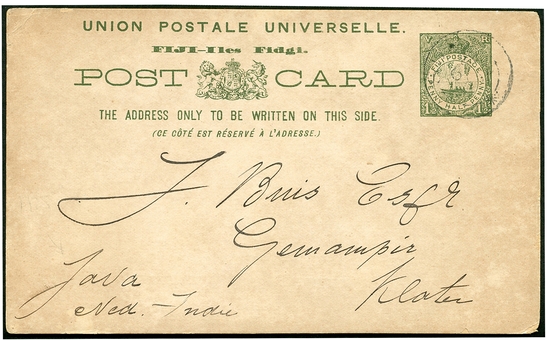 UNION POSTALE UNIVERSELLE.
FIJI-Iles Fidgi.
POST CARD
THE ADDRESS ONLY TO BE WRITTEN ON THIS SIDE.
(CE CÔTÉ EST RÉSERVÉ À L'ADRESSE.)
FIJI POSTAGE
PENNY HALF PENNY
J. Buis Esqr
Gemampir
Klaten
Java
Ned. Indie